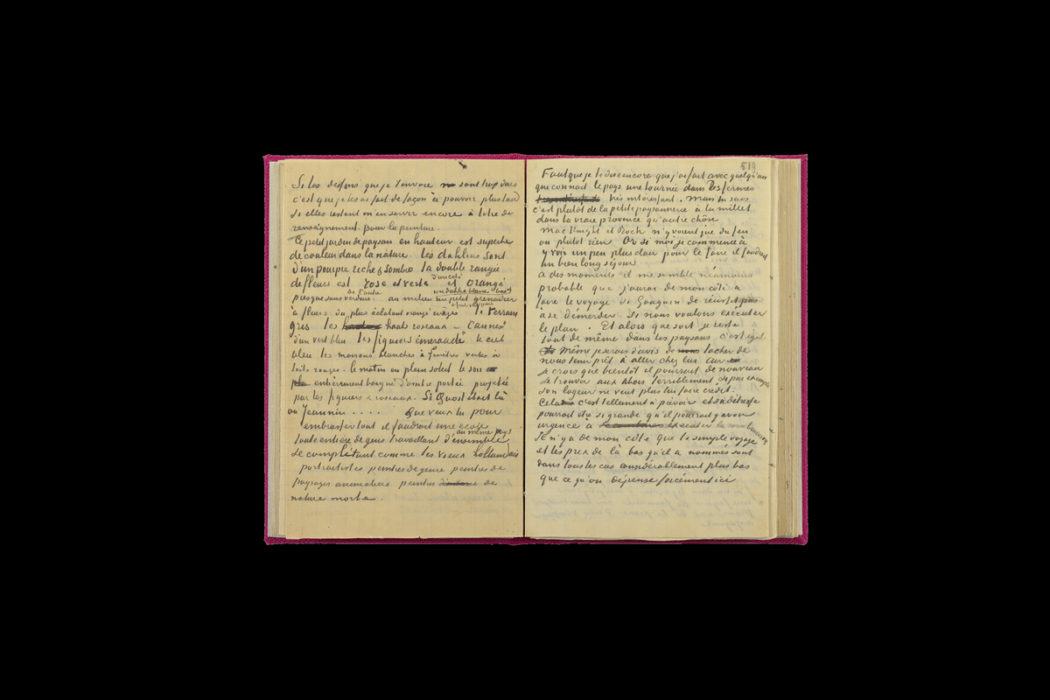 Si les dessins que je t'envoie sont trop durs
c'est que je les ai fait de façon à pouvoir plus tard
si elles restent m'en servir encore à titre de
renseignement pour la peinture.
Ce petit jardin de paysan en hauteur est superbe
de couleur dans la nature. les dahlias sont
d'un pourpre riche & sombre. la double rangée
de fleurs est rose et verte d'un côté et orangé
presque sans verdure de l'autre. au milieu un dahlia blanc bas et un petit grenadier
à fleurs du plus éclatant orangé rouge à fruits verts jaunes le terrain
gris les hauts roseaux – cannes
d'un vert bleu. les figuiers émeraude le ciel
bleu les maisons blanches à fenêtres vertes à
toits rouges. le matin en plein soleil le soir
entièrement baigné d'ombre portée projetée
par les figuiers & roseaux. Si Quost était là
ou Jeannin.... Que veux tu pour
embrasser tout il faudrait une école
toute entière de gens travaillant d'ensemble au même pays
se complétant comme les vieux hollandais
portraitistes peintres de genre peintres de
paysages animaliers peintres de
nature morte.
519
Faut que je te dise encore que j'ai fait avec quelqu'un
qui connait le pays une tournée dans les fermes
très intéressant. Mais tu sais
c'est plutôt de la petite paysannerie à la millet
dans la vraie provence qu'autre chôse
Mac Knight et Boch n'y voient que du feu
ou plutot rien. Or si moi je commence à
y voir un peu plus clair pour le faire il faudrait
un bien long sejour
à des moments il me semble néanmoins
probable que j'aurai de mon côté à
faire le voyage si Gauguin ne réussit pas
à se démerder. Si nous voulons exécuter
le plan. Et alors quoi soit je reste
tout de même dans les paysans c'est égal
Même je serais d'avis de tacher de
nous tenir prêt à aller chez lui car
je crois que bientôt il pourrait de nouveau
se trouver aux abois terriblement si par exemple
son logeur ne veut plus lui faire crédit.
Cela c'est tellement à prévoir et sa détresse
pourrait etre si grande qu'il pourrait y avoir
urgence à executer la combinaison
Il n'y a de mon côté que le simple voyage
et les prix de là bas qu'il a nommés sont
dans tous les cas considérablement plus bas
que ce qu'on dépense forcément ici